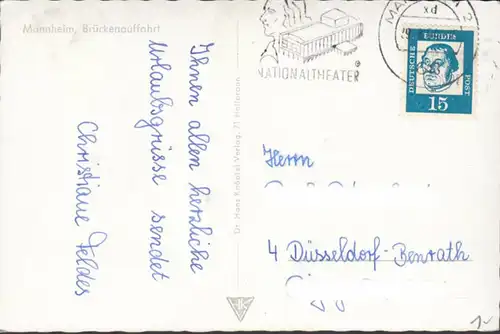 Mannheim, Brückenauffahrt
Ihnen allen herzliche
Urlaubsgrüsse sendet
Christiane Feldes
Dr. Hans Krüger Verlag, 71 Heilbronn
NATIONALTHEATER
xd
DEUTSCHE
BUNDES
POST
15
Herrn
4 Düsseldorf-Benrath